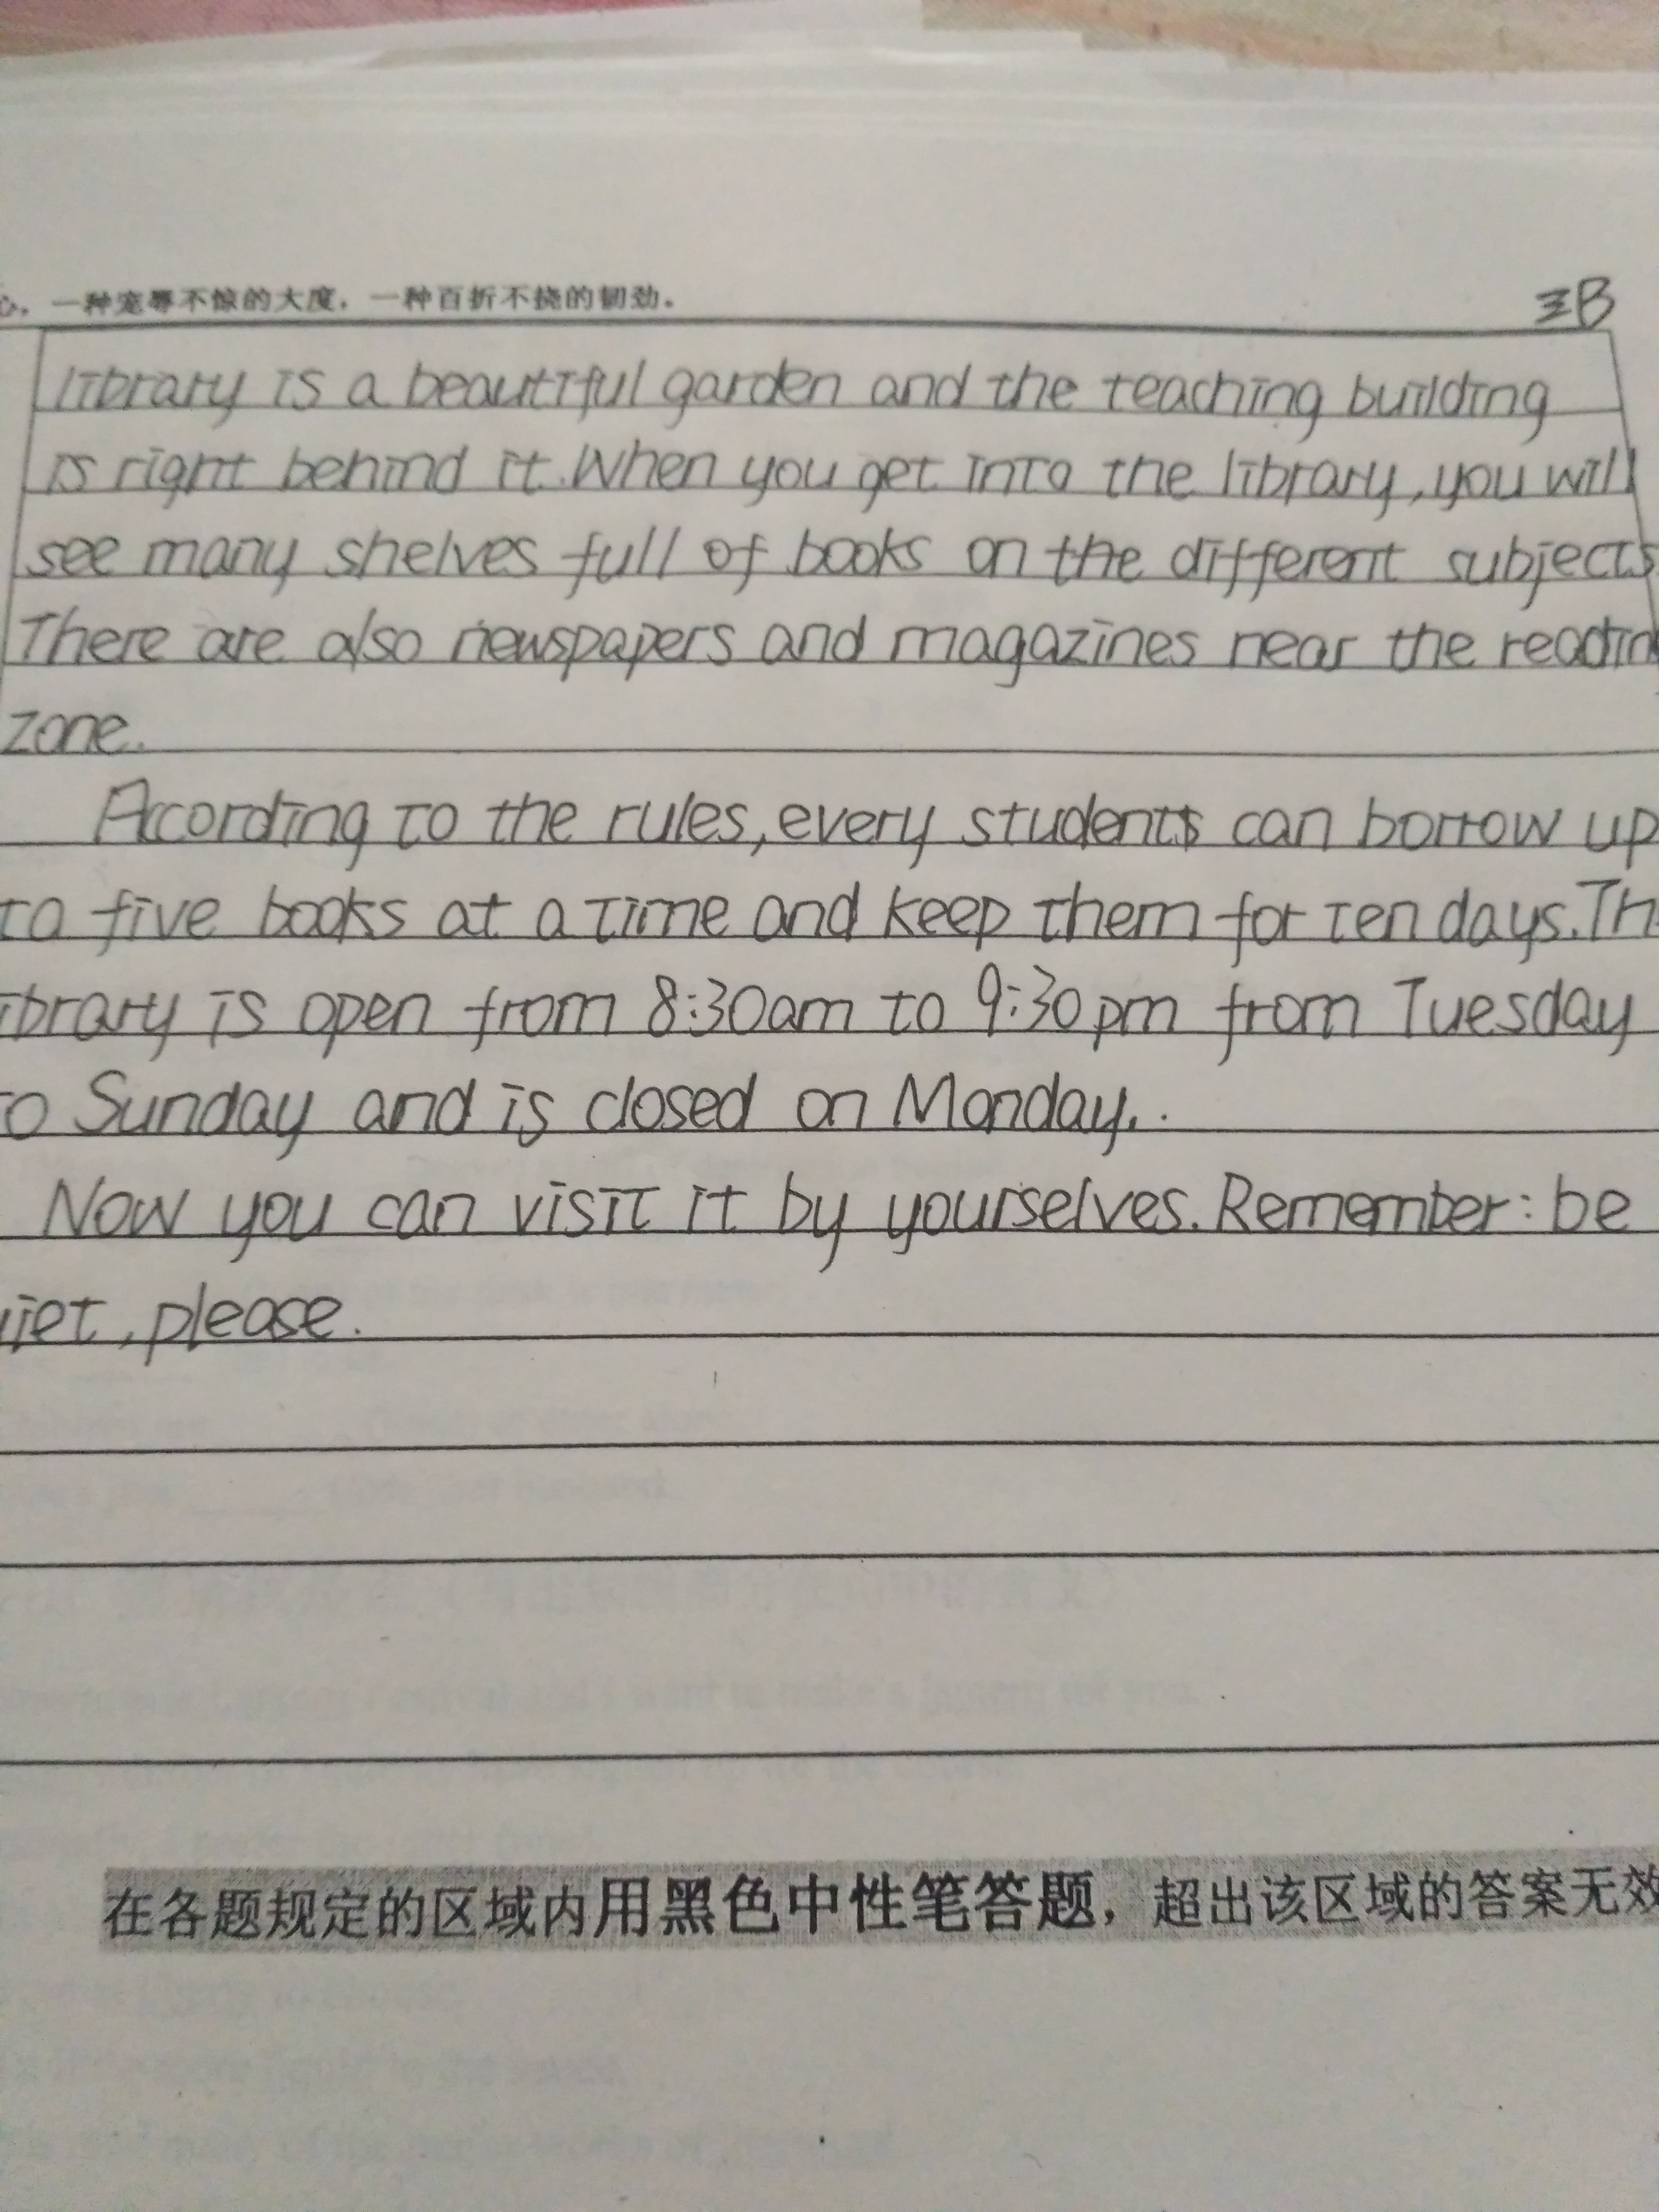 心，一种宠辱不惊的大度，一种百折不挠的韧劲。
library is a beautiful garden and the teaching building
is right behind it. When you get into the library, you will
see many shelves full of books on the different subjects
There are also newspapers and magazines near the readin
zone.
According to the rules, every students can borrow up
to five books at a time and keep them for ten days. Th
ibrary is open from 8:30am to 9:30pm from Tuesday
to Sunday and is closed on Monday..
Now you can visit it by yourselves. Remember: be
uiet, please.
在各题规定的区域内用黑色中性笔答题，超出该区域的答案无效